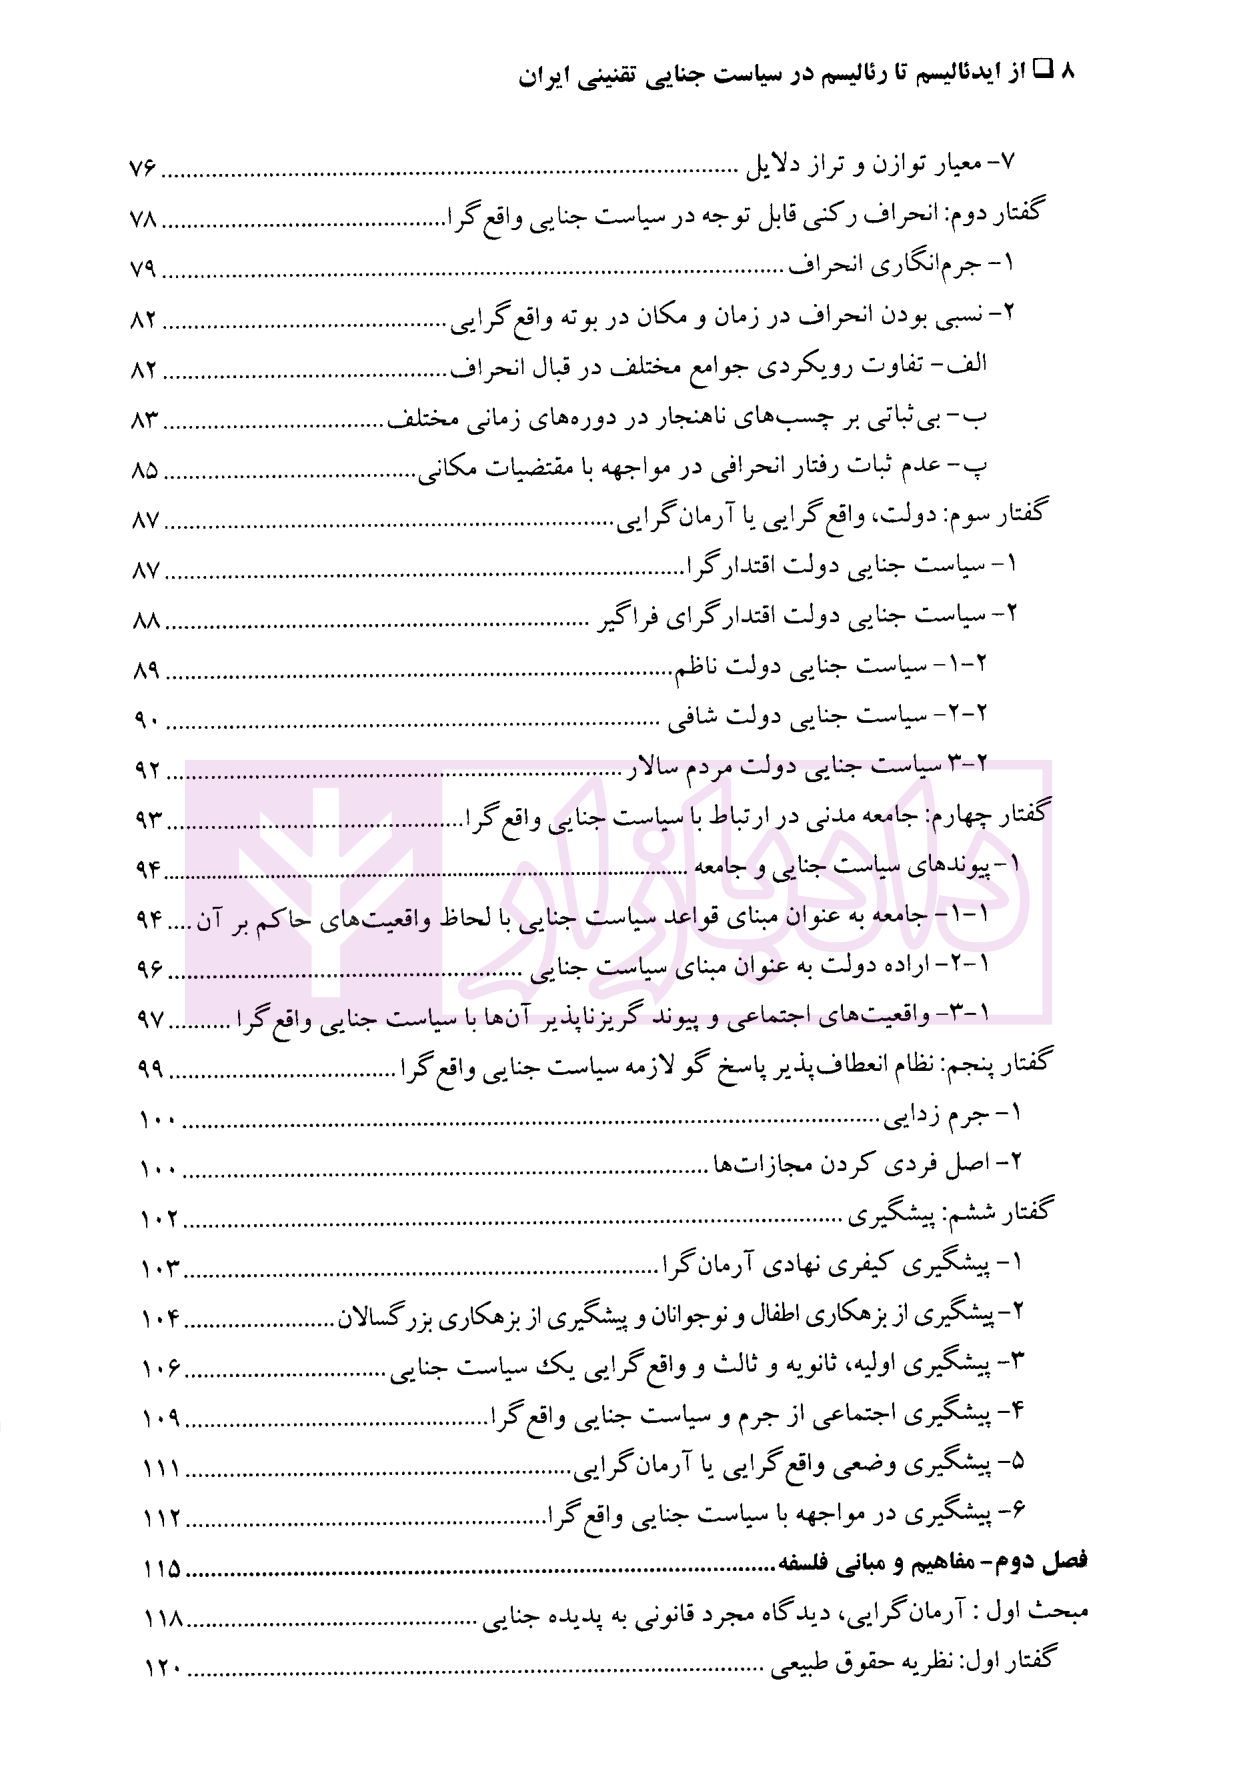 ۸ ❑ از ایدئالیسم تا رئالیسم در سیاست جنایی تقنینی ایران
۷- معیار توازن و تراز دلایل ........ ۷۶
گفتار دوم: انحراف رکنی قابل توجه در سیاست جنایی واقع‌گرا ........ ۷۸
۱- جرم‌انگاری انحراف ........ ۷۹
۲- نسبی بودن انحراف در زمان و مکان در بوته واقع‌گرایی ........ ۸۲
الف- تفاوت رویکردی جوامع مختلف در قبال انحراف ........ ۸۲
ب- بی‌ثباتی بر چسب‌های ناهنجار در دوره‌های زمانی مختلف ........ ۸۳
پ- عدم ثبات رفتار انحرافی در مواجهه با مقتضیات مکانی ........ ۸۵
گفتار سوم: دولت، واقع‌گرایی یا آرمان‌گرایی ........ ۸۷
۱- سیاست جنایی دولت اقتدارگرا ........ ۸۷
۲- سیاست جنایی دولت اقتدارگرای فراگیر ........ ۸۸
۲-۱- سیاست جنایی دولت ناظم ........ ۸۹
۲-۲- سیاست جنایی دولت شافی ........ ۹۰
۲-۳ سیاست جنایی دولت مردم سالار ........ ۹۲
گفتار چهارم: جامعه مدنی در ارتباط با سیاست جنایی واقع‌گرا ........ ۹۳
۱- پیوندهای سیاست جنایی و جامعه ........ ۹۴
۱-۱- جامعه به عنوان مبنای قواعد سیاست جنایی با لحاظ واقعیت‌های حاکم بر آن .... ۹۴
۱-۲- اراده دولت به عنوان مبنای سیاست جنایی ........ ۹۶
۱-۳- واقعیت‌های اجتماعی و پیوند گریزناپذیر آن‌ها با سیاست جنایی واقع‌گرا ........ ۹۷
دادبازار
گفتار پنجم: نظام انعطاف‌پذیر پاسخ گو لازمه سیاست جنایی واقع‌گرا ........ ۹۹
۱- جرم زدایی ........ ۱۰۰
۲- اصل فردی کردن مجازات‌ها ........ ۱۰۰
گفتار ششم: پیشگیری ........ ۱۰۲
۱- پیشگیری کیفری نهادی آرمان‌گرا ........ ۱۰۳
۲- پیشگیری از بزهکاری اطفال و نوجوانان و پیشگیری از بزهکاری بزرگسالان ........ ۱۰۴
۳- پیشگیری اولیه، ثانویه و ثالث و واقع‌گرایی یک سیاست جنایی ........ ۱۰۶
۴- پیشگیری اجتماعی از جرم و سیاست جنایی واقع‌گرا ........ ۱۰۹
۵- پیشگیری وضعی واقع‌گرایی یا آرمان‌گرایی ........ ۱۱۱
۶- پیشگیری در مواجهه با سیاست جنایی واقع‌گرا ........ ۱۱۲
فصل دوم- مفاهیم و مبانی فلسفه ........ ۱۱۵
مبحث اول : آرمان‌گرایی، دیدگاه مجرد قانونی به پدیده جنایی ........ ۱۱۸
گفتار اول: نظریه حقوق طبیعی ........ ۱۲۰